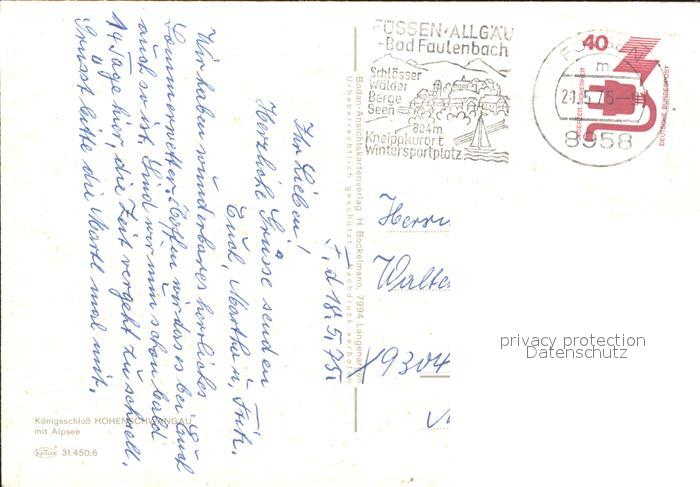 FÜSSEN·ALLGÄU
-Bad Faulenbach
Schlösser
Wälder
Berge
Seen
804m
Kneippkurort
Wintersportplatz
40
m
8958
JEDERZEIT SICHERHEIT
DEUTSCHE BUNDESPOST
d 18. 5. 75.
Ihr Lieben!
Herzliche Grüsse senden
Euch, Martha u.
Wir haben wunderbares herrliches
Sommerwetter, hoffen wir das es bei Euch
auch so ist. Sind wir nun schon bald
14 Tage hier, die Zeit vergeht zu schnell.
Grüsst bitte die Martl mal mit.
Bodan-Ansichtskartenverlag H. Bockelmann, 7994 Langenargen
Urheberrechtlich geschützt - Nachdruck verboten
Herrn
Walte
9304
privacy protection
Datenschutz
Königsschloß HOHENSCHWANGAU
mit Alpsee
31.450.6